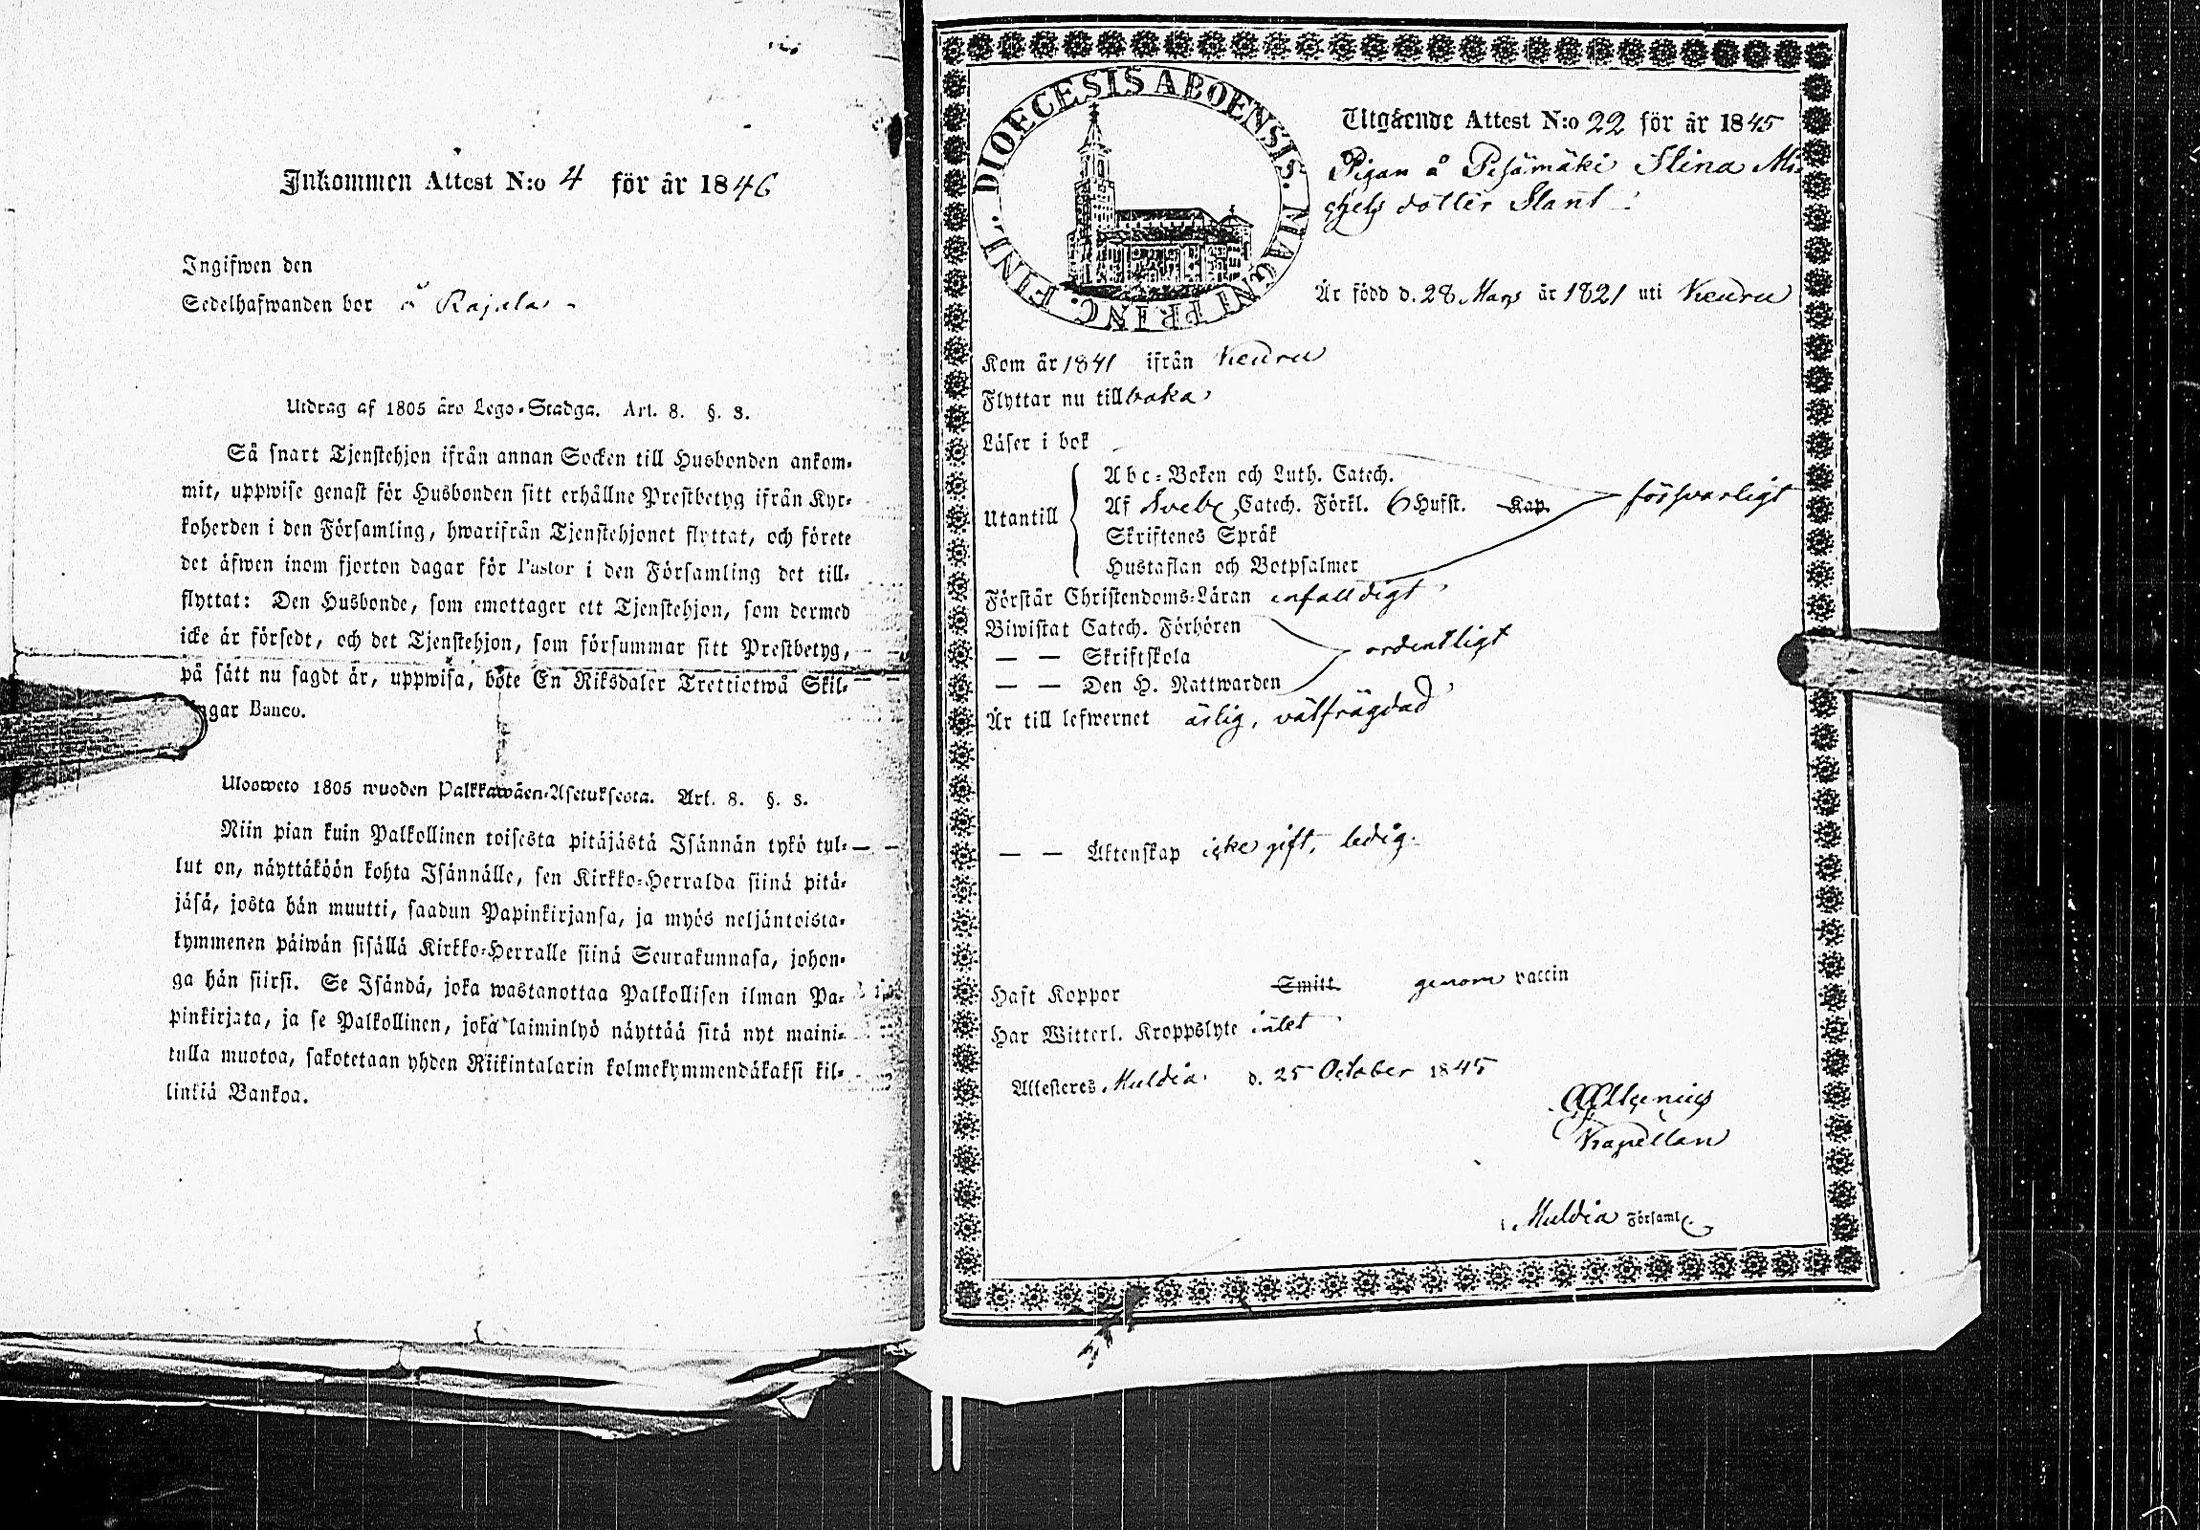 Inkommen Attest N:o 4 för år 1846
Ingifwen den
Sedelhafwanden bor å Rajala
Utdrag af 1805 års Lego-Stadga. Art. 8. §. 3.
Så snart Tjenstehjon ifrån annan Socken till Husbonden ankom-
mit, uppwise genast för Husbonden sitt erhållne Prestbetyg ifrån Kyr-
koherden i den Församling, hwarifrån Tjenstehjonet flyttat, och förete
det äfwen inom fjorton dagar för Pastor i den Församling det till-
flyttat: Den Husbonde, som emottager ett Tjenstehjon, som dermed
icke är försedt, och det Tjenstehjon, som försummar sitt Prestbetyg,
på sätt nu sagdt är, uppwisa, böte En Riksdaler Trettiotwå Skil-
ingar Banco.
Ulosweto 1805 wuoden Palkkawäen-Asetuksesta. Art. 8. §. 3.
Niin pian kuin Palkollinen toisesta pitäjästä Isännän tykö tul-
lut on, näyttäköön kohta Isännälle, sen Kirkko-Herralda siinä pitä-
jäsä, josta hän muutti, saadun Papinkirjansa, ja myös neljäntoista-
kymmenen päiwän sisällä Kirkko-Herralle siinä Seurakunnasa, johon-
ga hän siirsi. Se Isändä, joka wastanottaa Palkollisen ilman Pa-
pinkirjata, ja se Palkollinen, joka laiminlyö näyttää sitä nyt maini-
tulla muotoa, sakotetaan yhden Riikintalarin kolmekymmendäkaksi kil-
linkiä Bankoa.
DIOECESIS ABOENSIS. MAGNI PRINC. FINL.
Utgående Attest N:o 22 för år 1845
Pigan å Pesämäki Stina Mi-
chels dotter Slant
Är född d. 28 Mars år 1821 uti Keuru
Kom år 1841 ifrån Keuru
Flyttar nu tillbaka
Läser i bok
Abc-Boken och Luth. Catech.
Utantill
Af Sveb. Catech. Förkl. 6 Hufst. Kap. försvarligt
Skriftenes Språk
Hustaflan och Botpsalmer
Förstår Christendoms-Läran enfalldigt
Biwistat Catech. Förhören
— — Skriftskola ordentligt
— — Den H. Nattwarden
Är till lefwernet ärlig, välfrägdad
— — Äktenskap icke gift, ledig.
Haft Koppor Smitt. genom vaccin
Har Witterl. Kroppslyte intet
Attesteres Muldia d. 25 October 1845
Kapellan
i Muldia Församl.